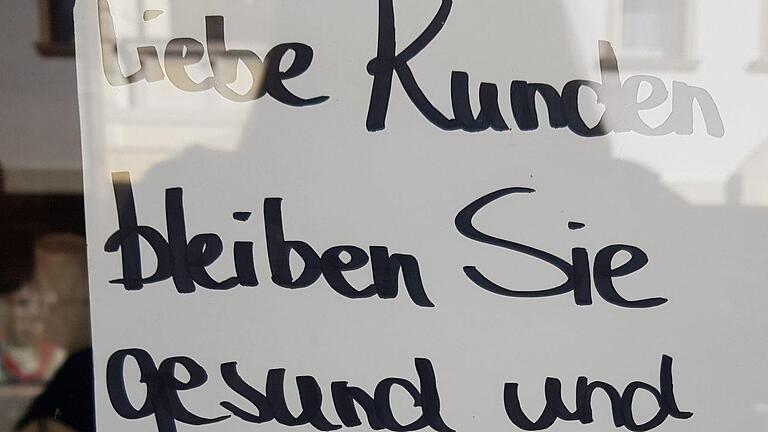 liebe Kunden
bleiben Sie
gesund und